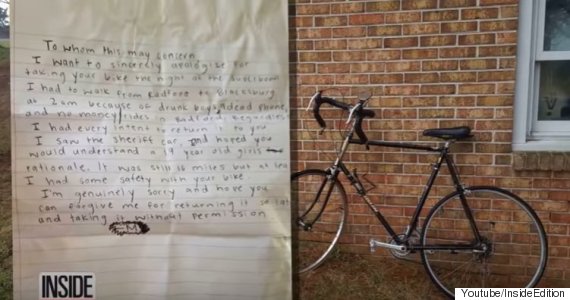 To whom this may concern,
I want to sincerely apologize for
taking your bike the night of the superbowl
I had to walk from Radford to Blacksburg
at 2am because of drunk boys, dead phone,
and no money/rides in Radford. Regardless
I had every intent to return it to you
I saw the sheriff car and hoped you
would understand a 19 year old girls
rationale. It was still 16 miles but at least
I had some safety with your bike
I'm genuinely sorry and hope you
can forgive me for returning it so late
and taking it without permission
INSIDE
EDITION
Youtube/InsideEdition